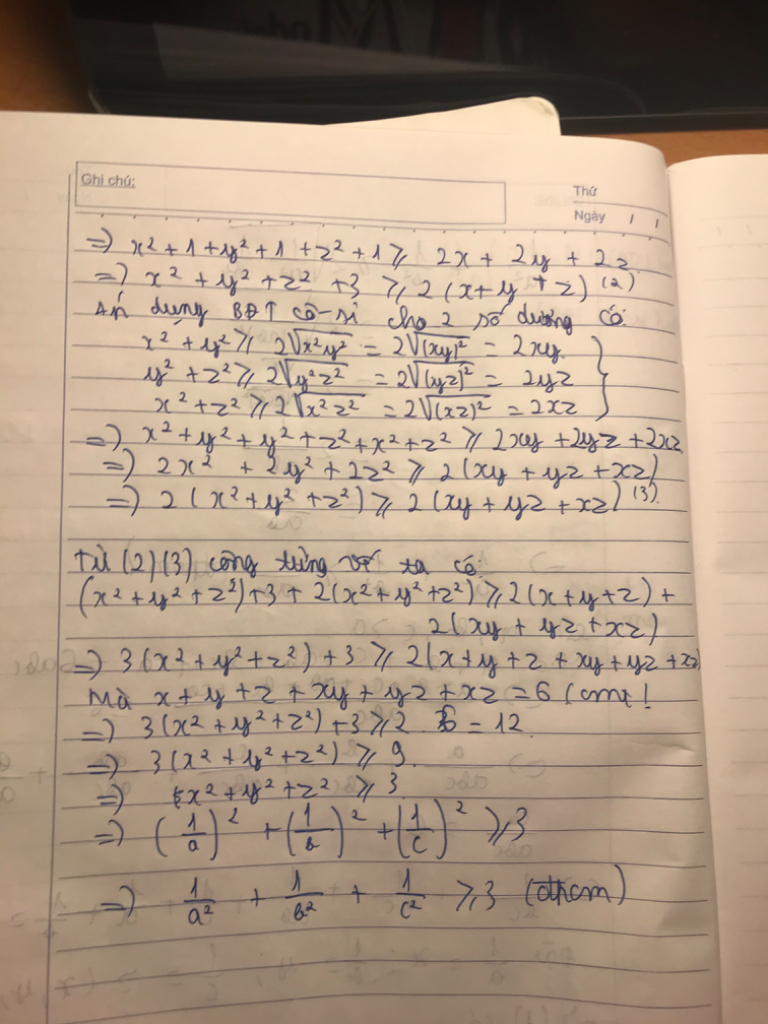 Ghi chú:
Thứ
Ngày / /
=) x² + 1 + y² + 1 + z² + 1 ⩾ 2x + 2y + 2z
=) x² + y² + z² + 3 ⩾ 2(x + y + z) (2)
dụng BĐT cô-si cho 2 số dương có
x² + y² ⩾ 2√x²y² = 2√(xy)² = 2xy
y² + z² ⩾ 2√y²z² = 2√(yz)² = 2yz
x² + z² ⩾ 2√x²z² = 2√(xz)² = 2xz
=) x² + y² + y² + z² + x² + z² ⩾ 2xy + 2yz + 2xz
=) 2x² + 2y² + 2z² ⩾ 2(xy + yz + xz)
=) 2(x² + y² + z²) ⩾ 2(xy + yz + xz) (3)
Từ (2) (3) cộng từng vế ta có
(x² + y² + z²) + 3 + 2(x² + y² + z²) ⩾ 2(x + y + z) +
2(xy + yz + xz)
=) 3(x² + y² + z²) + 3 ⩾ 2(x + y + z + xy + yz + xz)
Mà x + y + z + xy + yz + xz = 6 (cmt)
=) 3(x² + y² + z²) + 3 ⩾ 2.6 = 12
=) 3(x² + y² + z²) ⩾ 9
=) x² + y² + z² ⩾ 3
=) (1/a)² + (1/b)² + (1/c)² ⩾ 3
=) 1/a² + 1/b² + 1/c² ⩾ 3 (đhcm)